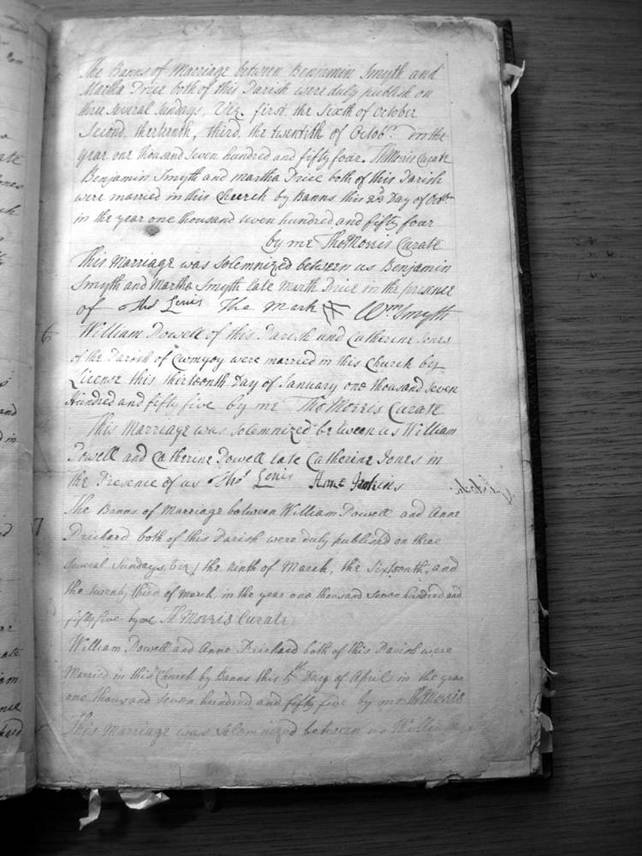 The Banns of Marriage between Benjamin Smyth and
Martha Price both of this Parish were duly publish on
three several Sundays, Viz. first the Sixth of October
Second, thirteenth, third, the twentieth of Octobr. in the
year one thousand Seven hundred and fifty four. Th Morris Curate
Benjamin Smyth and Martha Price both of this Parish
were married in this Church by Banns this Day of Octbr
in the year one thousand seven hundred and fifty four
by me Tho Morris Curate
This Marriage was solemnized between us Benjamin
Smyth and Martha Smyth late Marth Price in the presence
of Tho Lewis The Mark Wm Smyth
6 William Powell of this Parish and Catherine Jones
of the Parish of Cwmyoy were married in this Church by
License this thirteenth Day of January one thousand Seven
Hundred and fifty five by me Tho Morris Curate
This Marriage was Solemnized between us William
Powell and Catherine Powell late Catherine Jones in
the Presence of us Tho Lewis Anne Jenkins
7 The Banns of Marriage between William Powell and Anne
Prichard both of this Parish were duly published on three
several Sundays, viz, the ninth of March, the Sixteenth, and
the twenty third of March, in the year one thousand Seven hundred and
fifty five by me Th Morris Curate
William Powell and Anne Prichard both of this Parish were
Married in this Church by Banns this Day of April in the year
one thousand seven hundred and fifty five by me Th Morris
This Marriage was Solemnized between us William